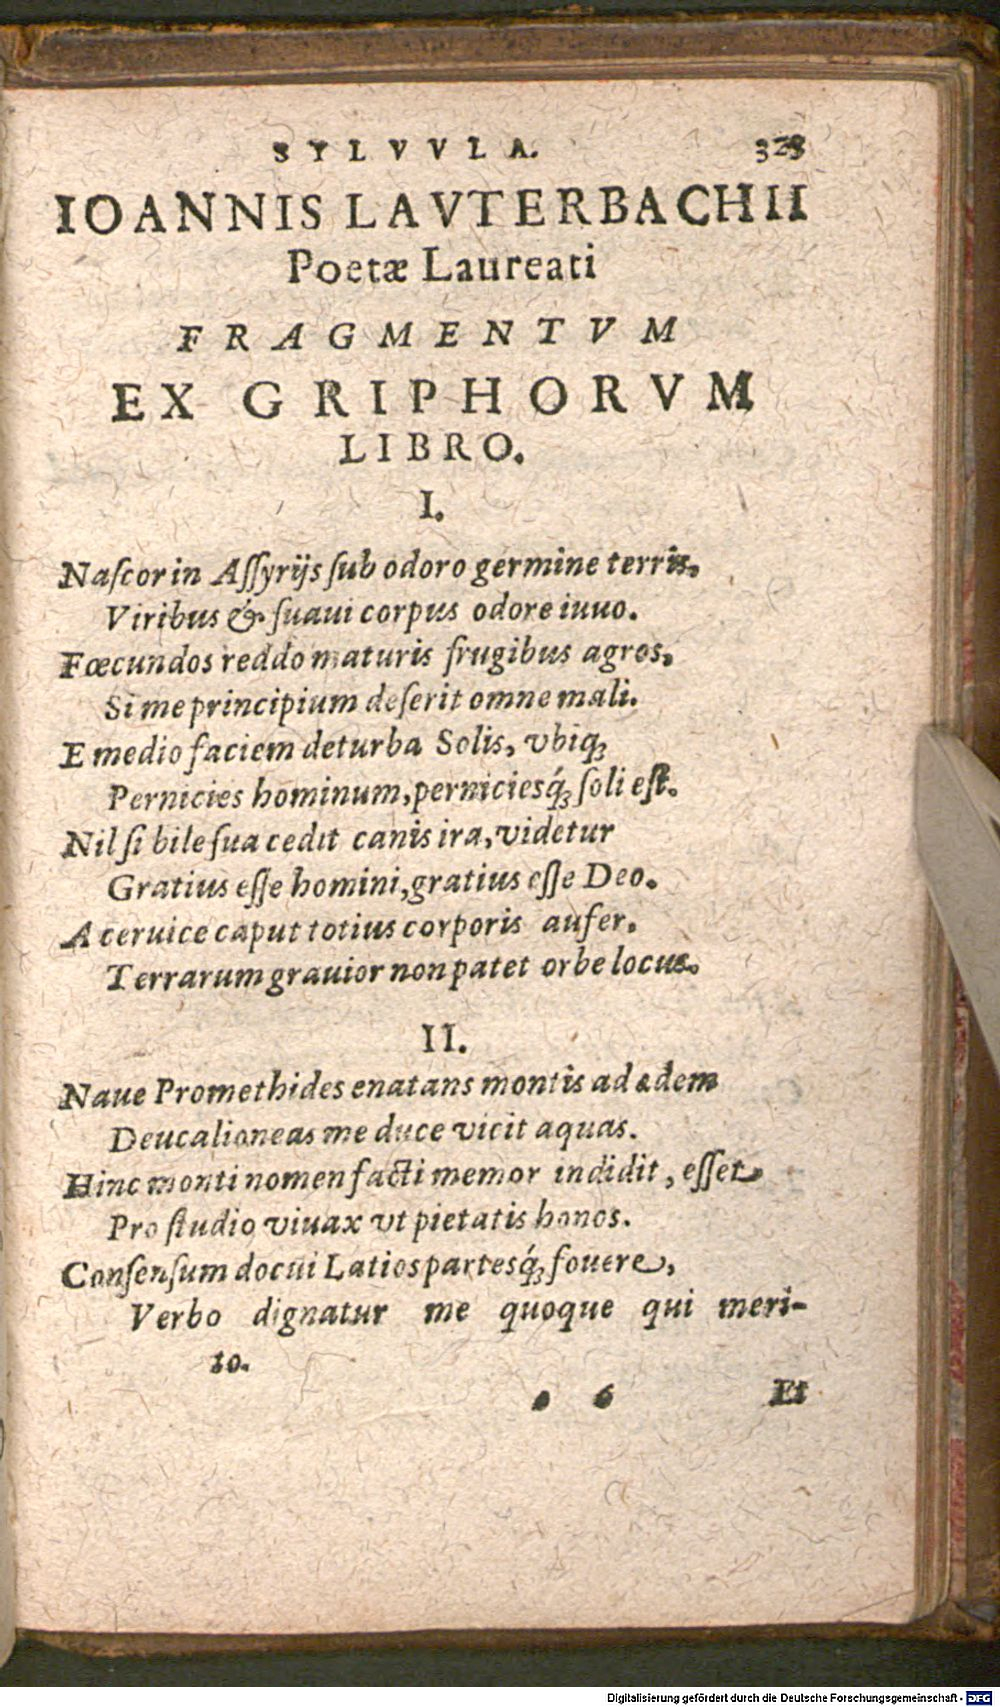 SYLVVLA. 323
IOANNIS LAVTERBACHII
Poetæ Laureati
FRAGMENTVM
EX GRIPHORVM
LIBRO.
I.
Naſcor in Aſſyrijs ſub odoro germine terris.
Viribus & ſuaui corpus odore iuuo.
Fœcundos reddo maturis frugibus agros,
Si me principium deſerit omne mali.
E medio faciem deturba Solis, vbiq́;
Pernicies hominum, pernicieſq́; ſoli eſt.
Nil ſi bile ſua cedit canis ira, videtur
Gratius eſſe homini, gratius eſſe Deo.
A ceruice caput totius corporis aufer.
Terrarum grauior non patet orbe locus.
II.
Naue Promethides enatans montis ad ædem
Deucalioneas me duce vicit aquas.
Hinc monti nomen facti memor indidit, eſſet
Pro ſtudio viuax vt pietatis honos.
Conſenſum docui Latios partesq́; fouere,
Verbo dignatur me quoque qui meri-
to.
o 6 Et
Digitalisierung gefördert durch die Deutsche Forschungsgemeinschaft - DFG